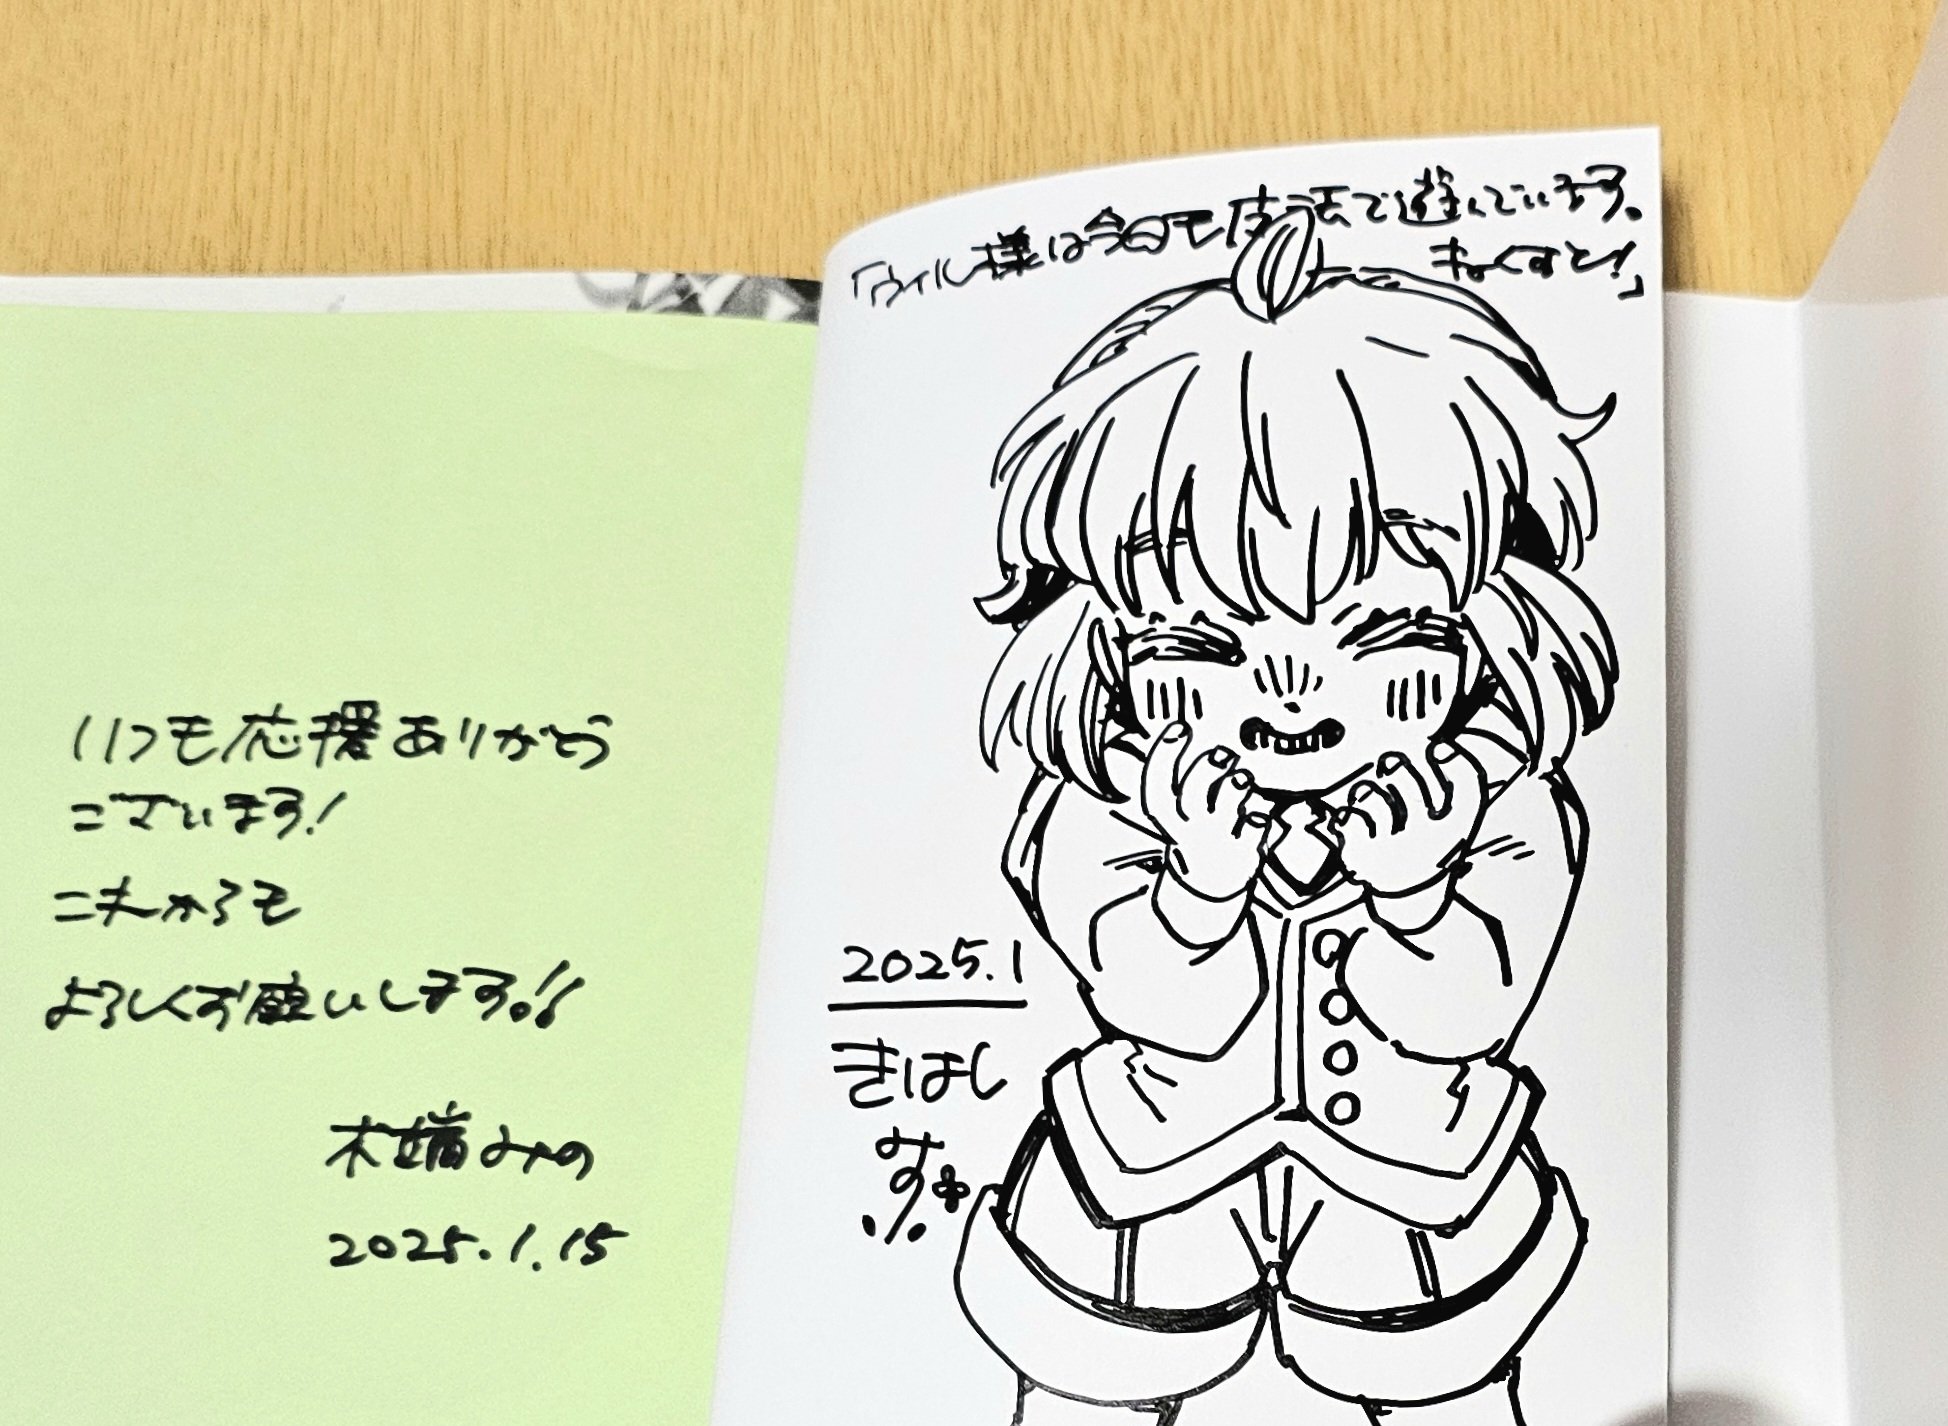 いつも応援ありがとう
ございます!
これからも
よろしくお願いします!!
木端みの
2025.1.15
「ウィル様は今日も魔法で遊んでいます。
ねくすと!」
2025.1
きはし